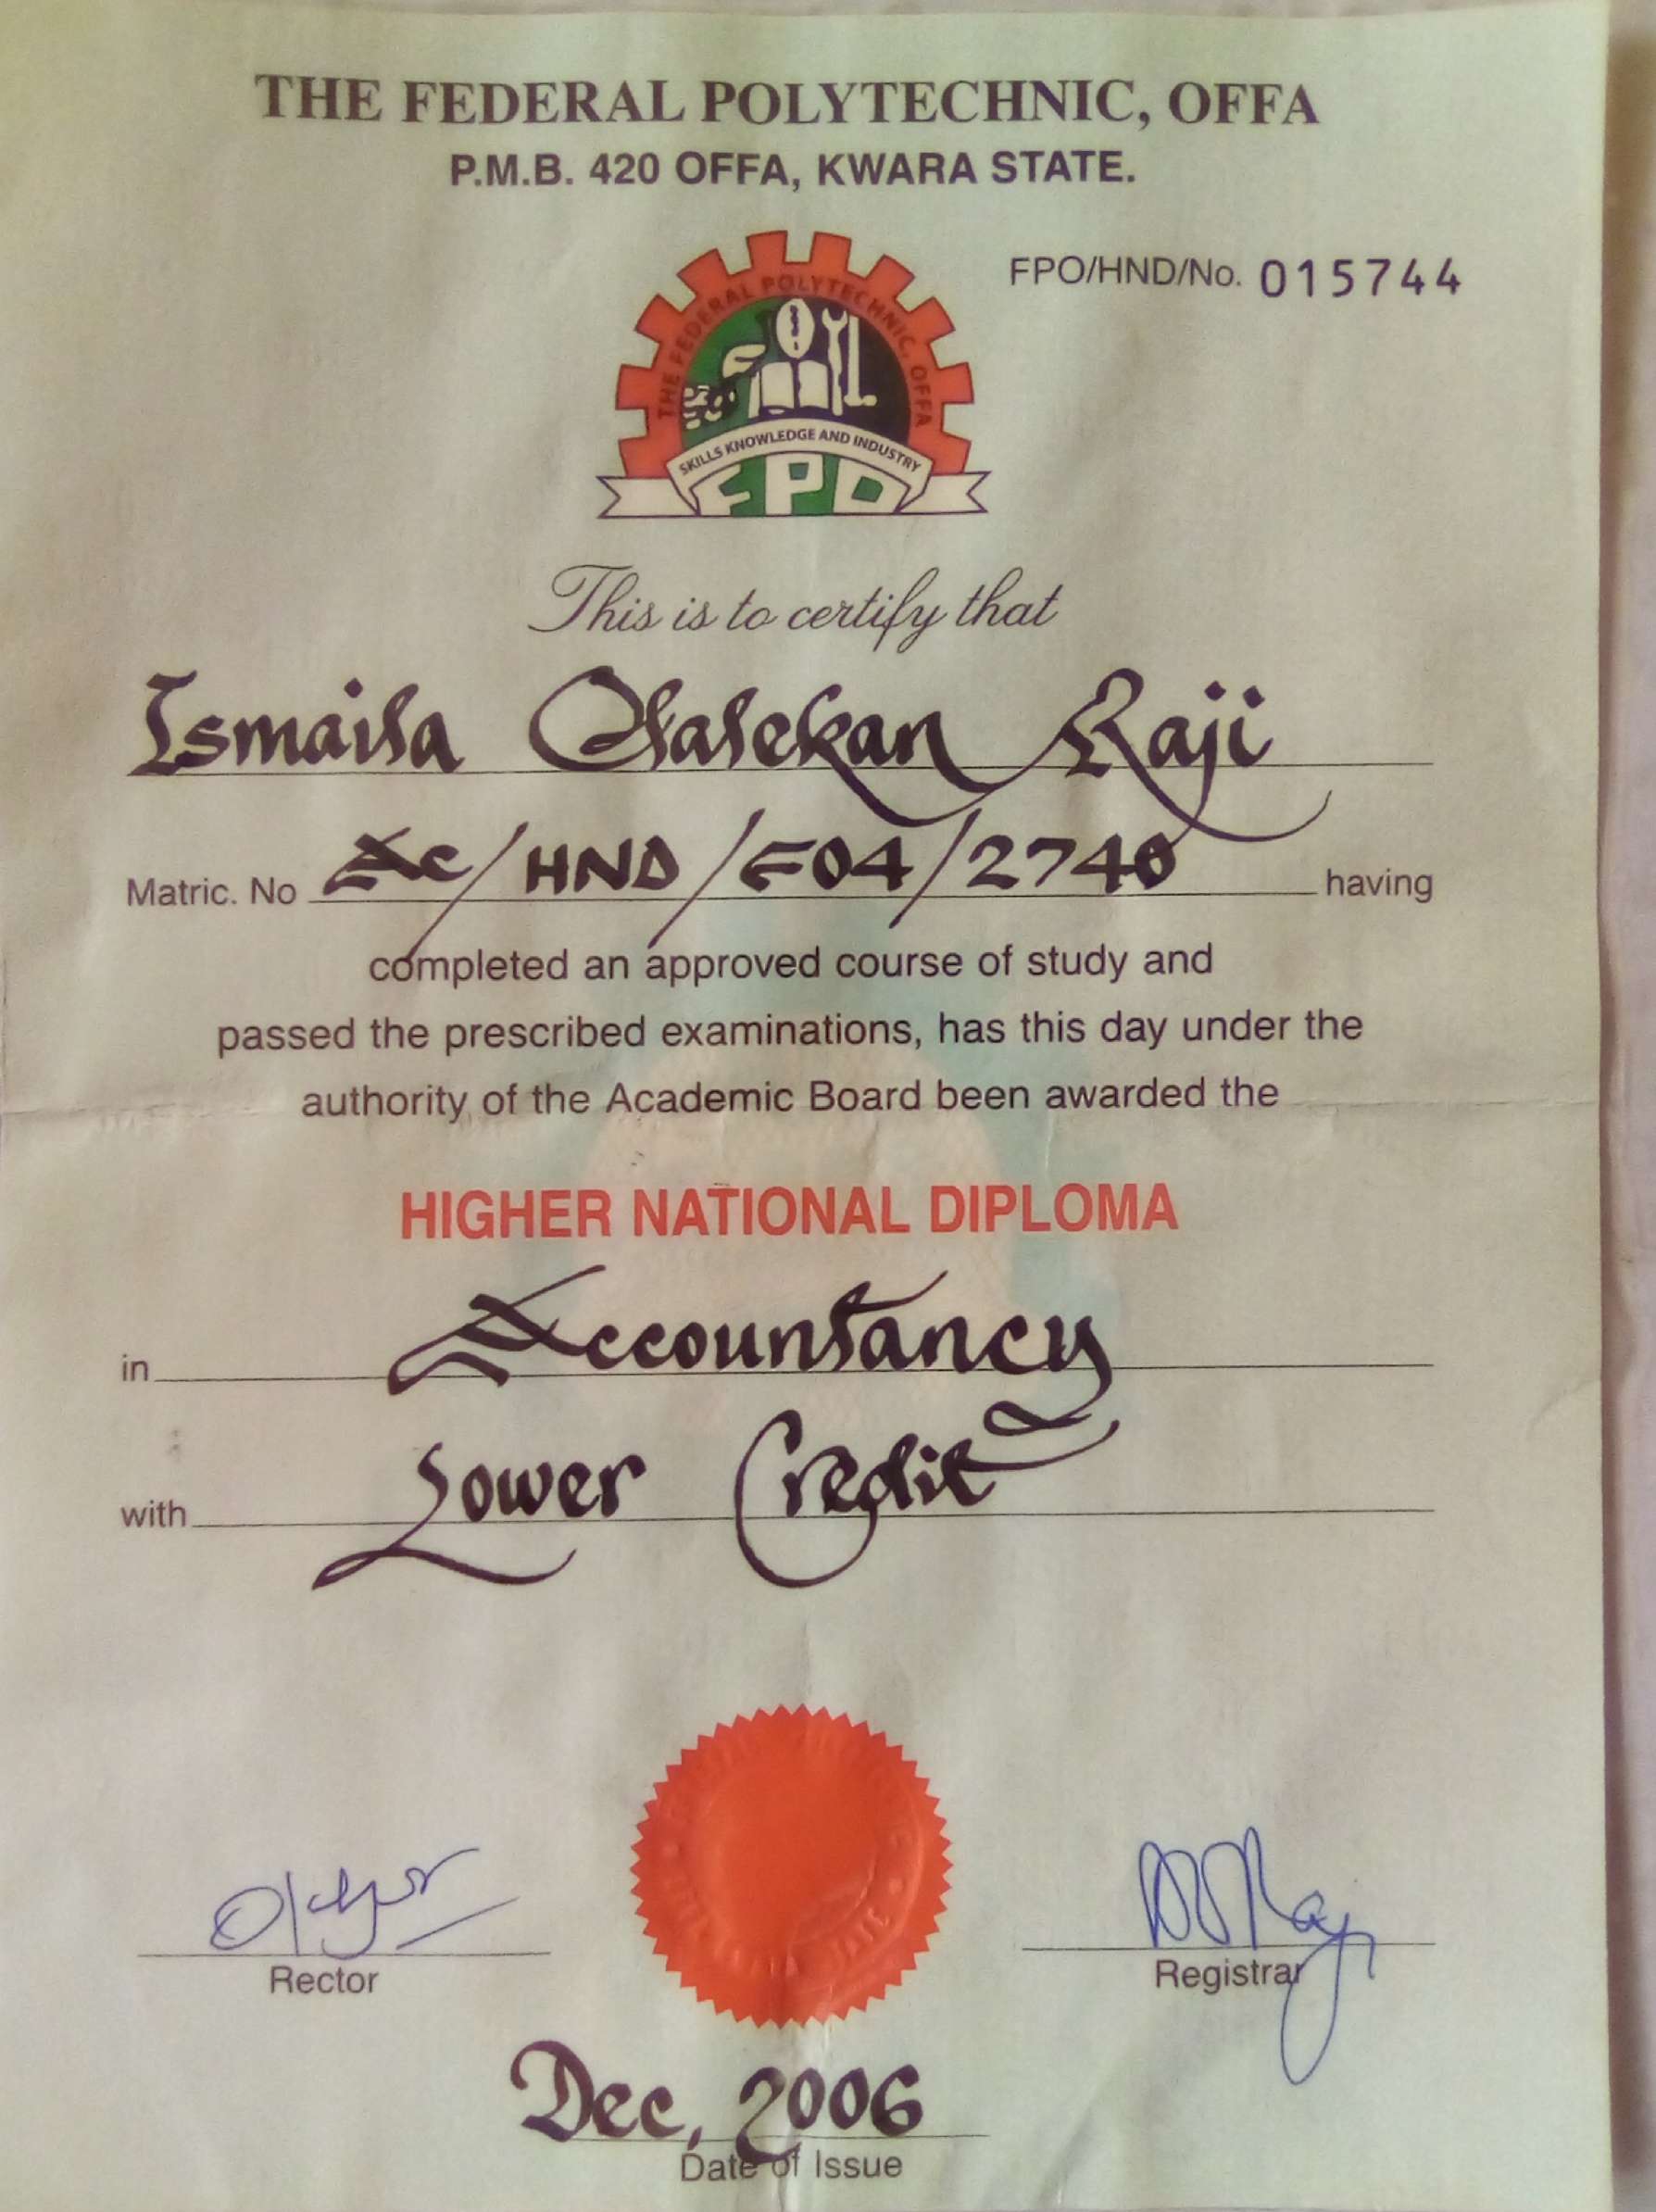 THE FEDERAL POLYTECHNIC, OFFA
P.M.B. 420 OFFA, KWARA STATE.
FPO/HND/No. 015744
THE FEDERAL POLYTECHNIC, OFFA
SKILLS KNOWLEDGE AND INDUSTRY
FPO
This is to certify that
Ismaila Olalekan Raji
Matric. No Ac/HND/F04/2740 having
completed an approved course of study and
passed the prescribed examinations, has this day under the
authority of the Academic Board been awarded the
HIGHER NATIONAL DIPLOMA
in Accountancy
with Lower Credit
Rector
Registrar
Dec, 2006
Date of Issue